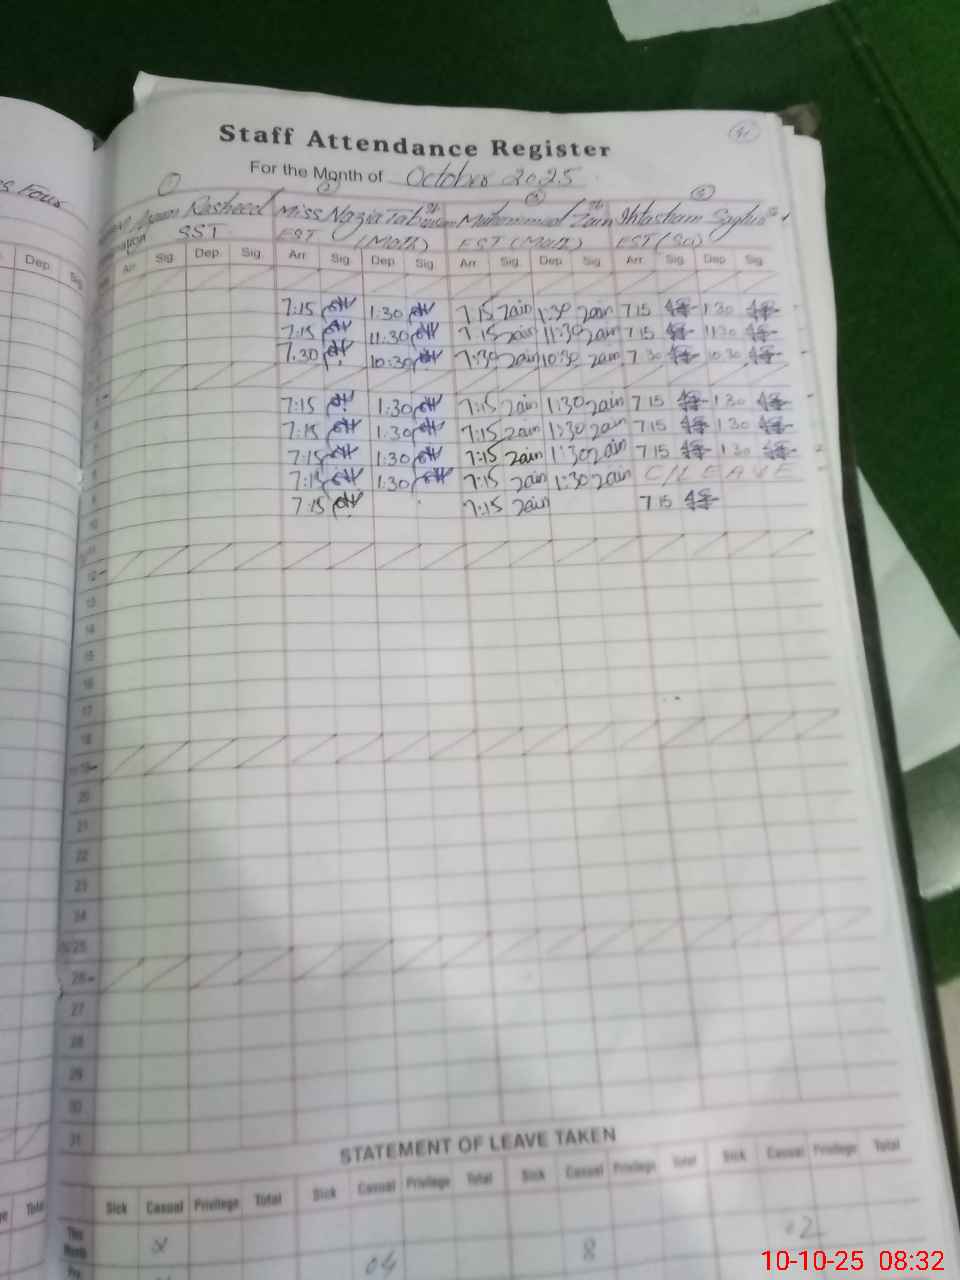 Staff Attendance Register
For the Month of October 2025
Four
Rasheed Miss Nazia Muhammad Zain Ihtasham
SST EST (Math) EST (Math) EST (Sci)
Dep. Arr. Sig. Dep. Sig. Arr. Sig. Dep. Sig. Arr. Sig. Dep. Sig. Arr. Sig. Dep. Sig.
7:15 1:30 7:15 zain 1:30 zain 7 15 1 30
7:15 11:30 7:15 zain 11:30 zain 7 15 11 30
7.30 10:30 7:30 zain 10:30 zain 7 30 10 30
7:15 1:30 7:15 zain 1:30 zain 7 15 1 30
7:15 1:30 7:15 zain 1:30 zain 7 15 1 30
7:15 1:30 7:15 zain 1:30 zain 7 15 1 30
7:15 1:30 7:15 zain 1:30 zain C/LEAVE
7:15 7:15 zain 7 15
12
13
14
15
16
17
18
19
20
21
22
23
24
25
26
27
28
29
30
31
STATEMENT OF LEAVE TAKEN
Total Sick Casual Privilege Total Sick Casual Privilege Total Sick Casual Privilege Total Sick Casual Privilege Total
This Month 04 8 02
10-10-25 08:32